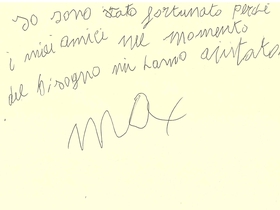 Io sono stato fortunato perché
i miei amici nel momento
del bisogno mi hanno aiutato.
Max